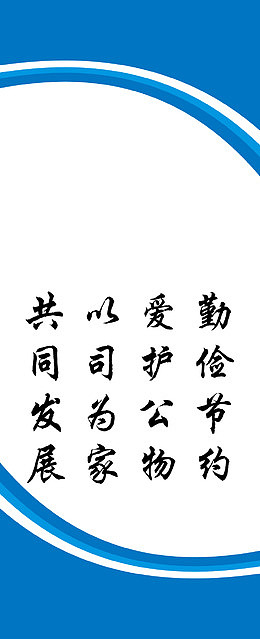 勤俭节约
爱护公物
以司为家
共同发展